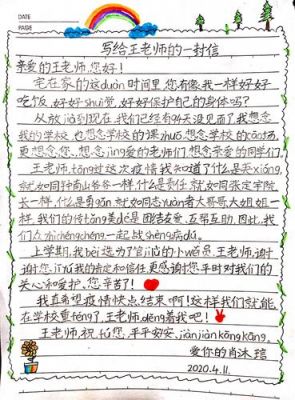 DATE
PAGE
写给王老师的一封信
亲爱的王老师,您好!
宅在家的这duàn时间里,您有像我一样好好
吃饭、好好shuì觉、好好保护自己的身体吗?
从放jià到现在,我们已经有94天没见面了,我想念
我的学校,也想念学校的课zhuō,想念学校的cāo场,
更想念您、想念jìng爱的老师们,想念亲爱的同学们。
王老师,tōng过这次疫情我知道了什么是英xióng,
就如同钟南山爷爷一样。什么是责任,就如同张定宇院
长一样,什么是勇gǎn,就如同志yuàn者大哥哥大姐姐一
样,我们的传tǒng美dé是团结友爱、互帮互助。因此,我
们众志chéngchéng一起战shèng病dú。
上学期,我bèi选为了官jiā的小wěi员,王老师,谢
谢您,jǐ yǔ我的肯定和信任,更感谢您平时对我们的
关心和爱护。您辛苦了!
我真希望疫情快点结束啊!这样我们就能
在学校重féng了,王老师,děng着我吧!
王老师,祝fú您,平平安安、jiànjiànkāngkāng。
爱你的肖沐
2020.4.11.